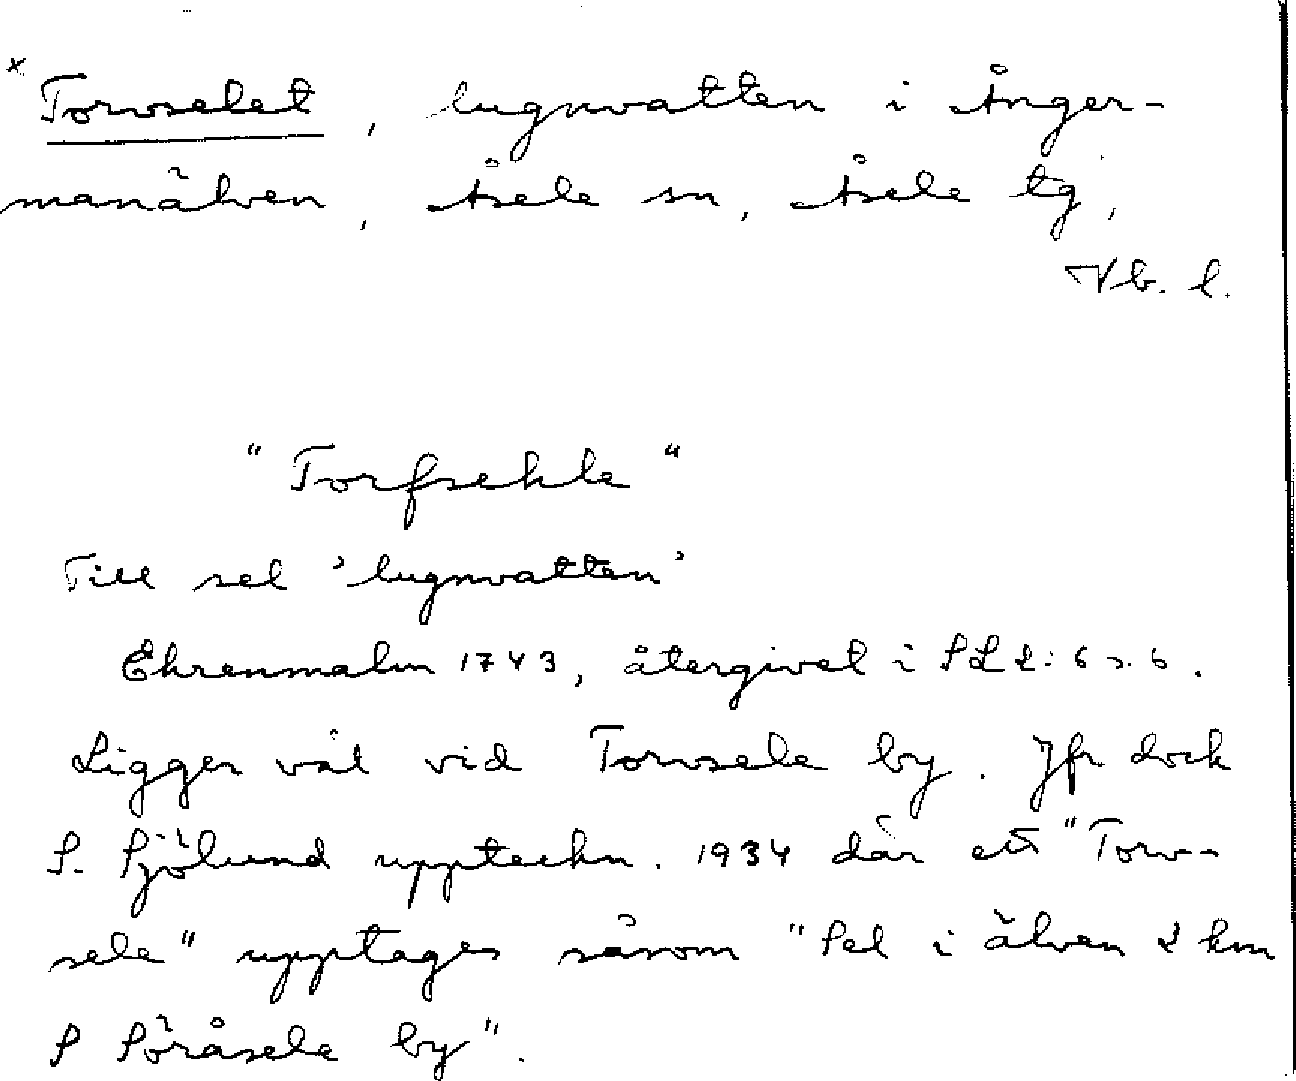 × Torvselet, lugnvatten i Ånger-
manälven, Åsele sn, Åsele tg,
Vb. l.
"Torfsehle"
Till sel 'lugnvatten'
Ehrenmalm 1743, återgivet i SLL: 6 s. 6.
Ligger väl vid Torvsele by. Jfr dock
S. Sjölund uppteckn. 1934 där ett "Torv-
sele" upptages såsom "Sel i älven 2 km
S Söråsele by".